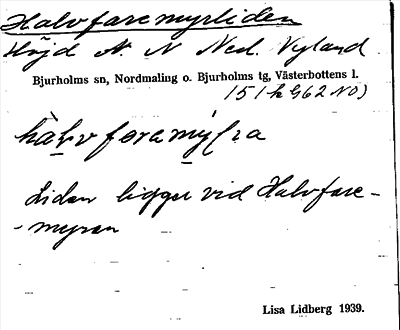 Halvfaremyrliden
Höjd N. N Ned. Nyland
Bjurholms sn, Nordmaling o. Bjurholms tg, Västerbottens l.
Liden ligger vid Halvfare-
-myran
Lisa Lidberg 1939.